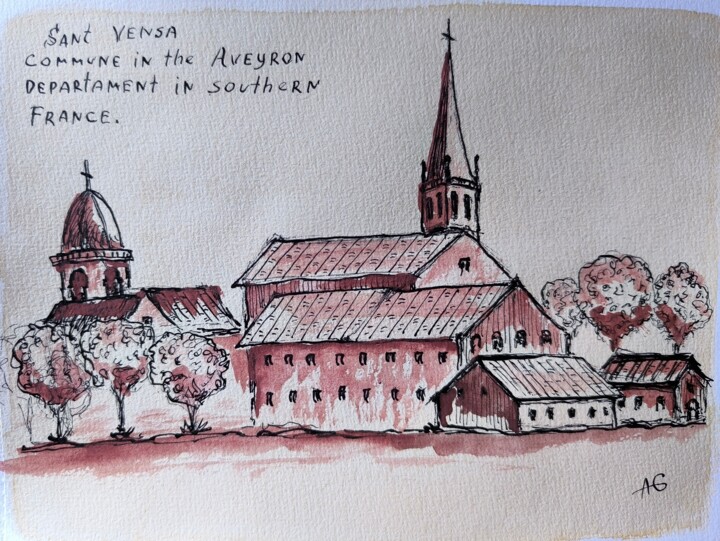 Sant Vensa
Commune in the Aveyron
Departament in southern
France.
AG